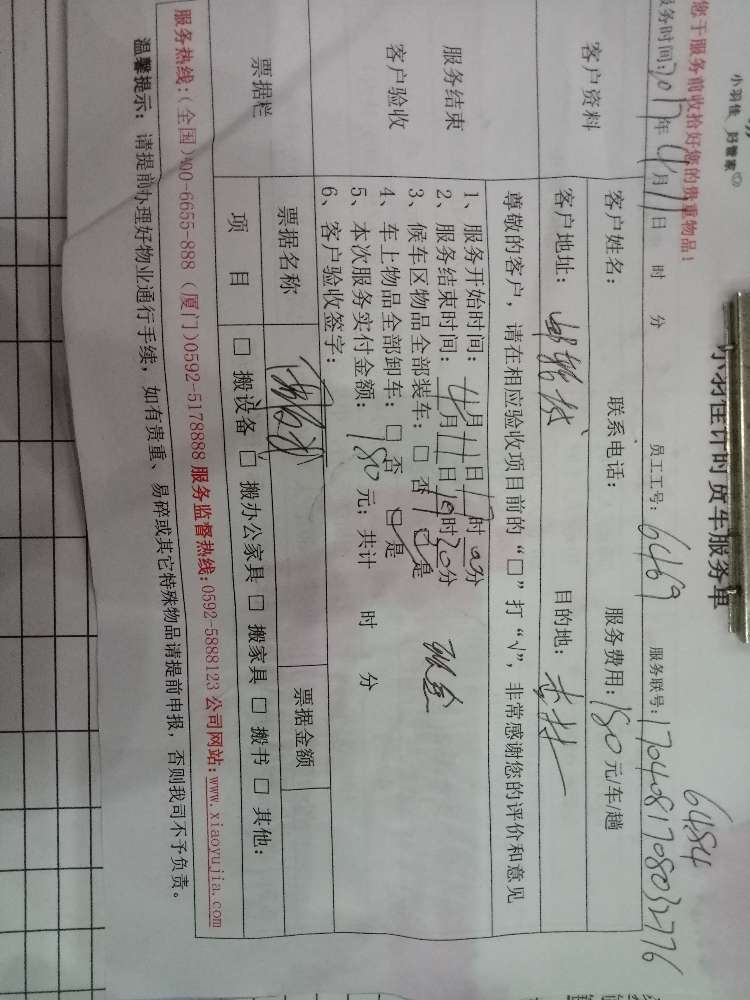 小羽佳 好管家
小羽佳计时货车服务单
6484
您于服务前收拾好您的贵重物品！
服务时间:2017年4月11日 时 分 员工工号: 6469 服务联号: 1704081708032776
客户资料
客户姓名： 联系电话： 服务费用: 180元/车/趟
客户地址： 目的地：
服务结束
客户验收
尊敬的客户，请在相应验收项目前的“□”打“√”，非常感谢您的评价和意见
1、服务开始时间：4月11日17时00分
2、服务结束时间：4月11日19时20分
3、候车区物品全部装车：□ 否 □ 是 现金
4、车上物品全部卸车：□ 否 □ 是
5、本次服务实付金额：180元；共计 时 分
6、客户验收签字：
票据栏
票据名称 票据金额
项 目 □ 搬设备 □ 搬办公家具 □ 搬家具 □ 搬书 □ 其他:
服务热线:(全国)400-6655-888 (厦门)0592-5178888 服务监督热线:0592-5888123 公司网站:www.xiaoyujia.com
温馨提示：请提前办理好物业通行手续，如有贵重、易碎或其它特殊物品请提前申报，否则我司不予负责。